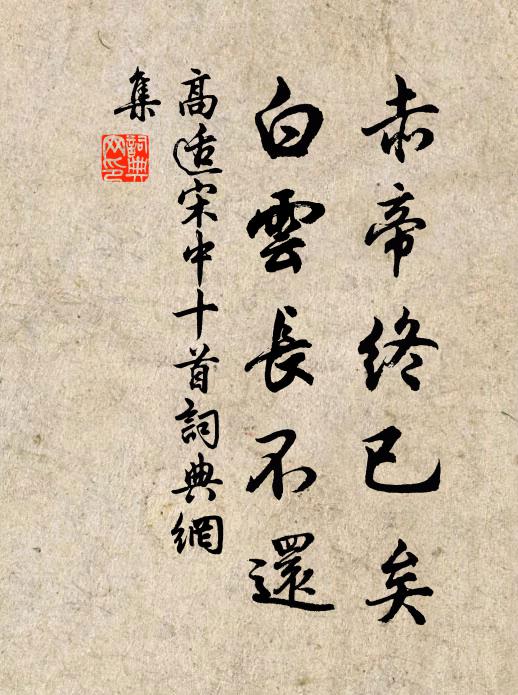 赤帝終已矣
白雲長不還
高适宋中十首詞典網
集
詞典
网印